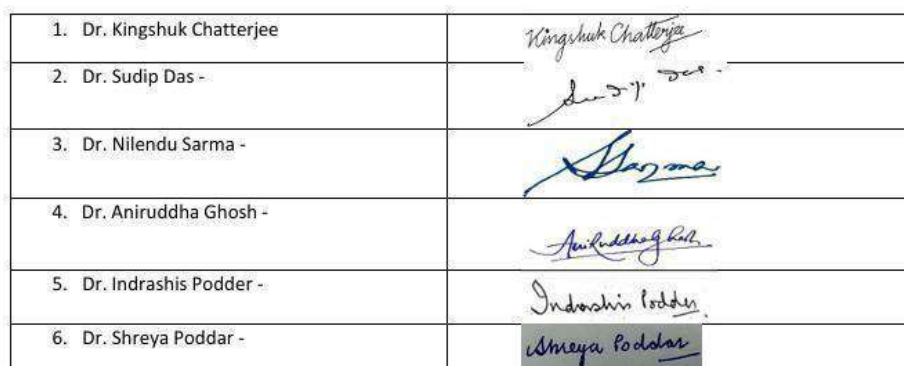 1. Dr. Kingshuk Chatterjee
Kingshuk Chatterjee
2. Dr. Sudip Das -
Sudip Das.
3. Dr. Nilendu Sarma -
NSarma
4. Dr. Aniruddha Ghosh -
Aniruddha Ghosh
5. Dr. Indrashis Podder -
Indrashis Podder
6. Dr. Shreya Poddar -
Shreya Poddar